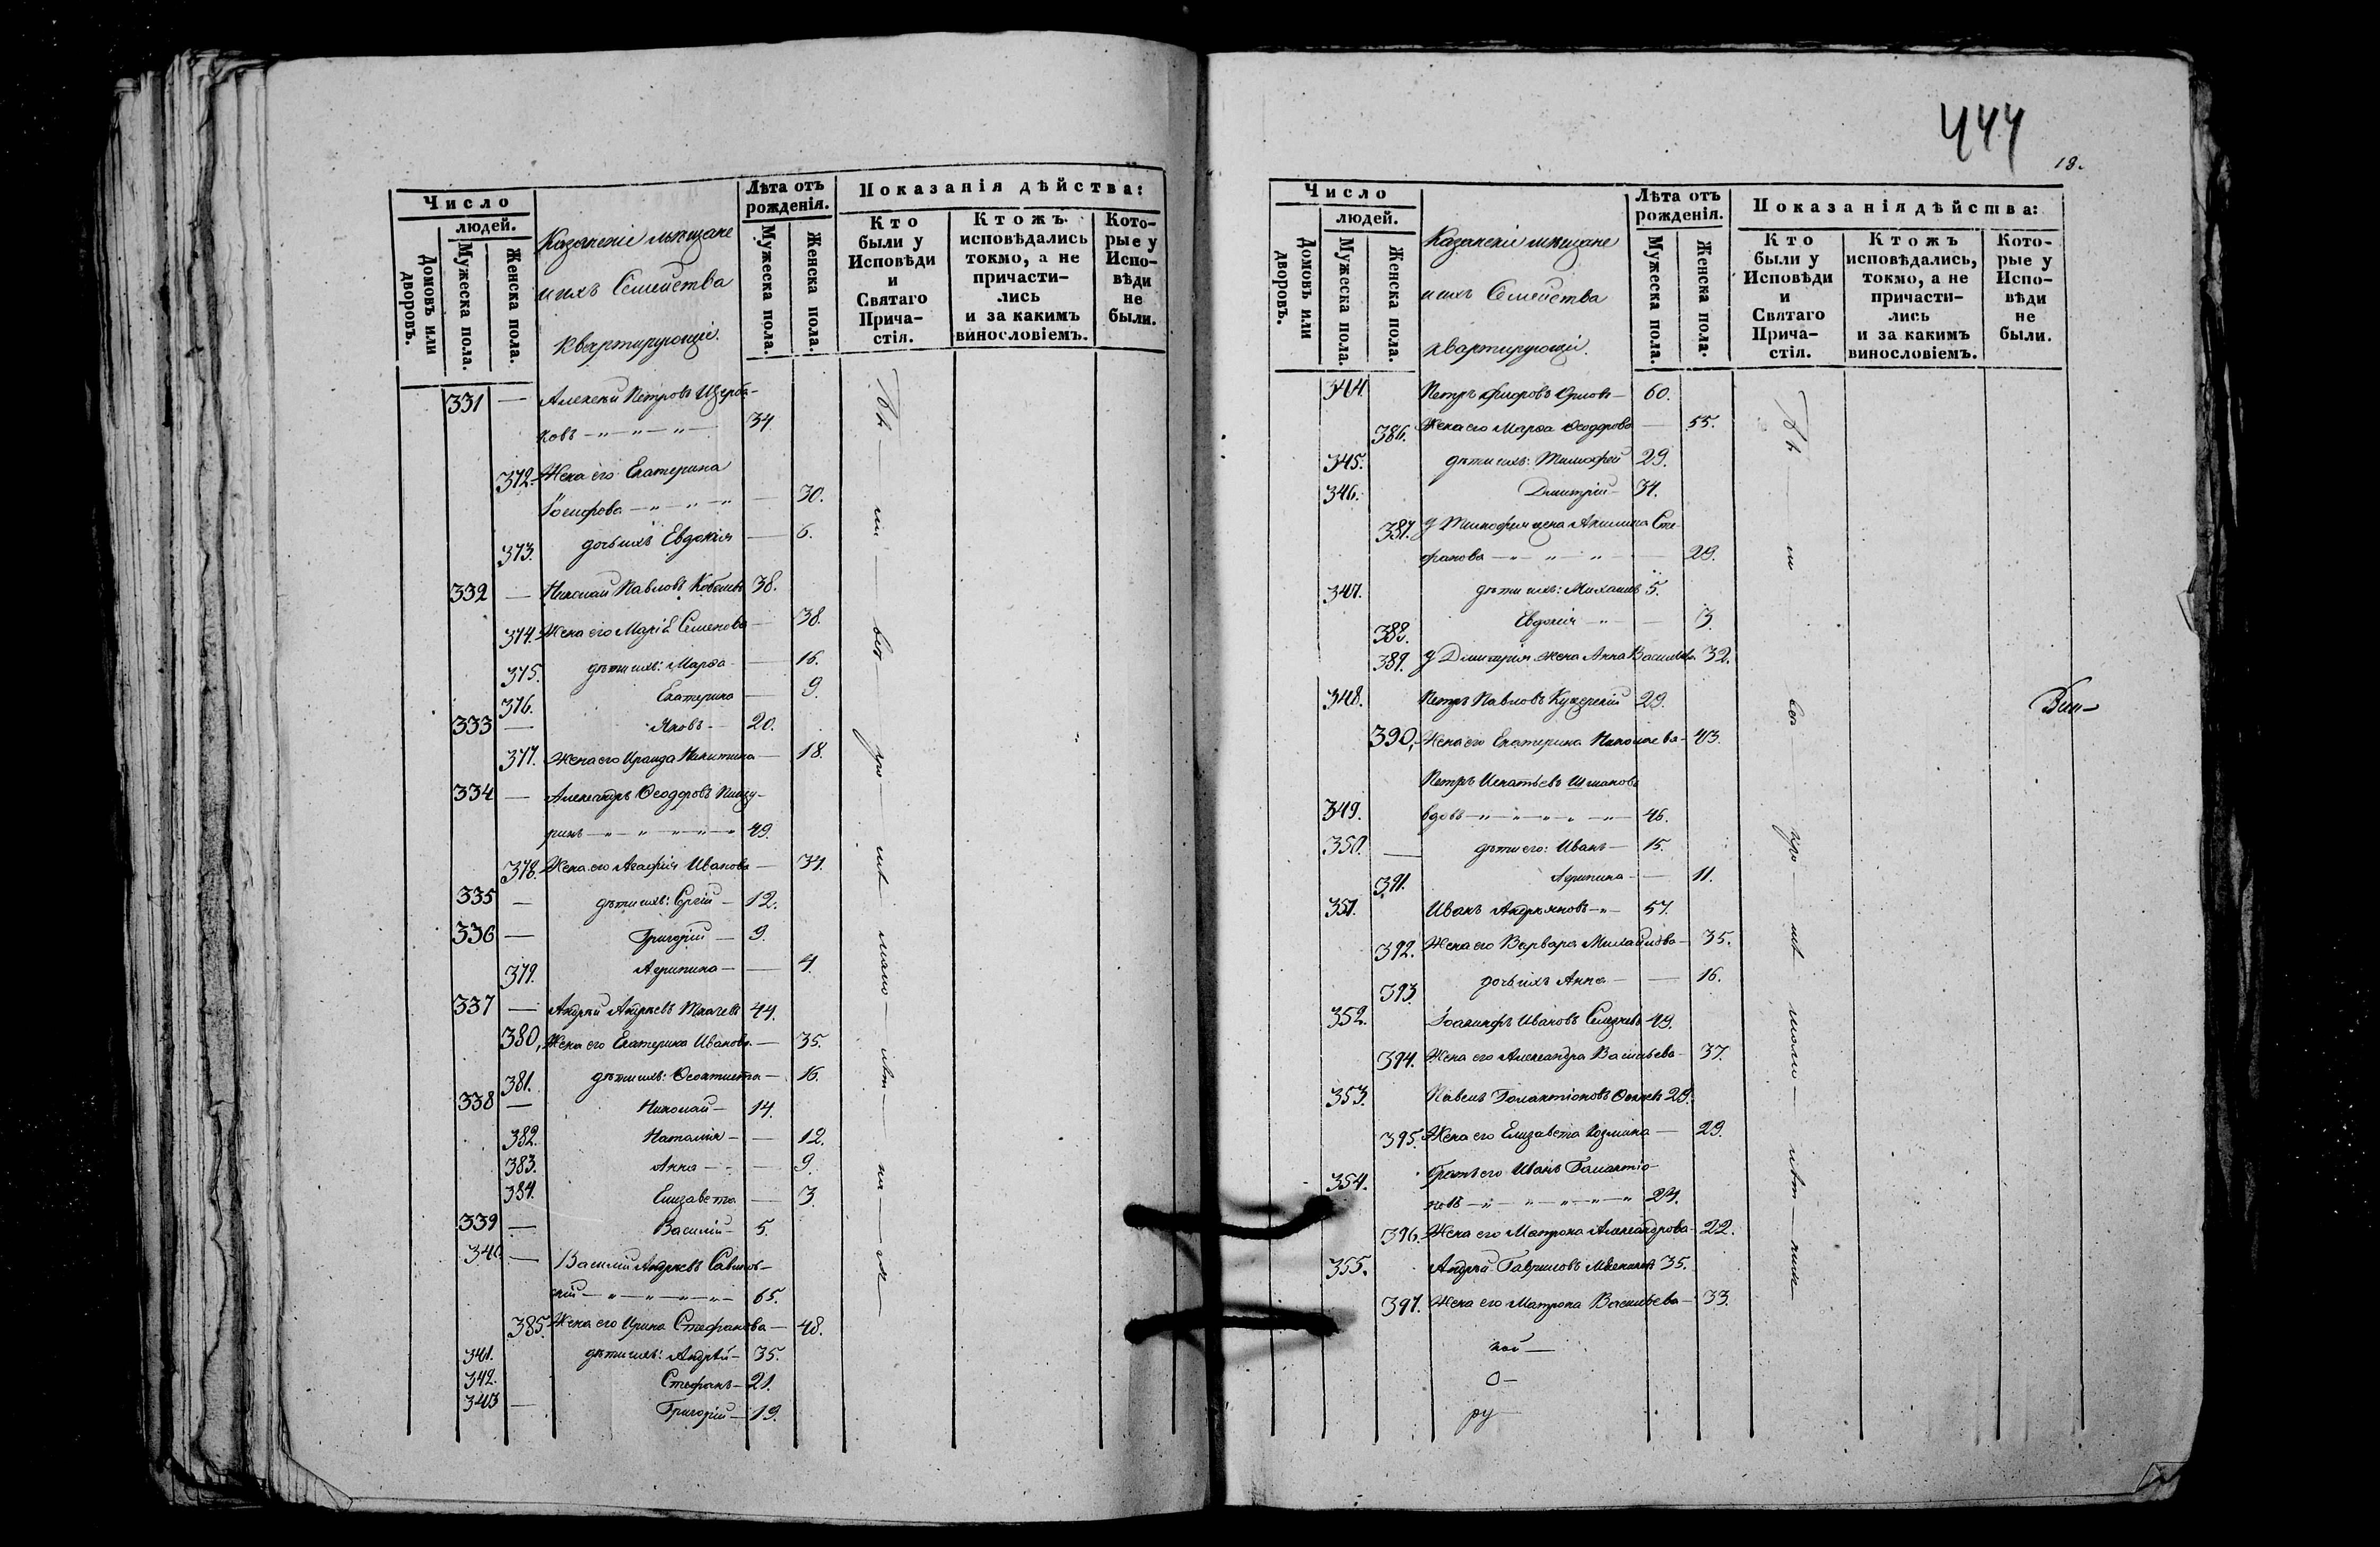 Число
людей.
Домовъ или дворовъ.
Мужеска пола.
Женска пола.
Казанскіе мѣщане
и ихъ Семейства
квартирующіе.
Лѣта отъ рожденія.
Мужеска пола.
Женска пола.
Показанія дѣйства:
Кто были у Исповѣди и Святаго Прича-стія.
Ктожъ исповѣдались токмо, а не причасти-лись и за какимъ винословіемъ.
Кото-рые у Испо-вѣди не были.
331 — Алексѣй Петровъ Щерба-
ковъ — „ — „ — „ — 34.
372. Жена его Екатерина
Іосифова — „ — „ — „ — 30.
373. дочь ихъ Евдокія — 6.
332 — Николай Павловъ 38.
374. Жена его Марія Семенова — 38.
375. дѣти ихъ: Марѳа — 16.
376. Екатерина — 9.
333 — Яковъ — 20.
377. Жена его Ираида Никитина — 18.
334 — Александръ Ѳеодоровъ
ринъ — „ — „ — „ — „ — „ 49.
378. Жена его Агафія Иванова — 34.
335 — дѣти ихъ: Сергій — 12.
336 — Григорій — 9.
379. Агрипина — 4.
337 — Андрей Андреевъ Ткачевъ 44.
380. Жена его Екатерина Иванова — 35.
381. дѣти ихъ: Ѳеоктиста — 16.
338 — Николай — 14.
382. Наталія — 12.
383. Анна — 9.
384. Елизавета — 3.
339 — Василій — 5.
340. — Василій Андреевъ Савинов-
скій — „ — „ — „ — „ — 65.
385. Жена его Ирина Стефанова — 48.
341. дѣти ихъ: Андрей — 35.
342. Стефанъ — 21.
343 — Григорій — 19.
444
18.
Число
людей.
Домовъ или дворовъ.
Мужеска пола.
Женска пола.
Казанскіе мѣщане
и ихъ Семейства
квартирующіе.
Лѣта отъ рожденія.
Мужеска пола.
Женска пола.
Показанія дѣйства:
Кто были у Исповѣди и Святаго Прича-стія.
Ктожъ исповѣдались, токмо, а не причасти-лись и за какимъ винословіемъ.
Кото-рые у Испо-вѣди не были.
344. Петръ Орловъ — 60.
386. Жена его Марѳа Ѳеодорова — 55.
345. дѣти ихъ: Тимофей 29.
346. Дмитрій — 34.
387. у Тимофея жена Акилина Сте-
фанова — „ — „ — „ — 29.
347. дѣти ихъ: Михаилъ 5.
388. Евдокія — „ — 3.
389. у Дмитрія жена Анна Васильева 32.
348. Петръ Павловъ 29.
390. Жена его Екатерина Николаева — 43.
Петръ Игнатьевъ
349. вдовъ — „ — „ — „ — „ — 46.
350. — дѣти его: Иванъ — 15.
391. Агрипина — 11.
351. Иванъ Андреяновъ — „ — 57.
392. Жена его Варвара Михайлова — 35.
393. дочь ихъ Анна — 16.
352. Іоакинфъ Ивановъ Селезневъ 49.
394. Жена его Александра Васильева — 37.
353. Павелъ Галактіоновъ 29.
395. Жена его Елизавета Козмина — 29.
354. Братъ его Иванъ Галактіо-
новъ — „ — „ — „ — „ — „ 24.
396. Жена его Матрона Александрова — 22.
355. Андрей Гавриловъ 35.
397. Жена его Матрона Васильева — 33.
кой —
о —
ру —